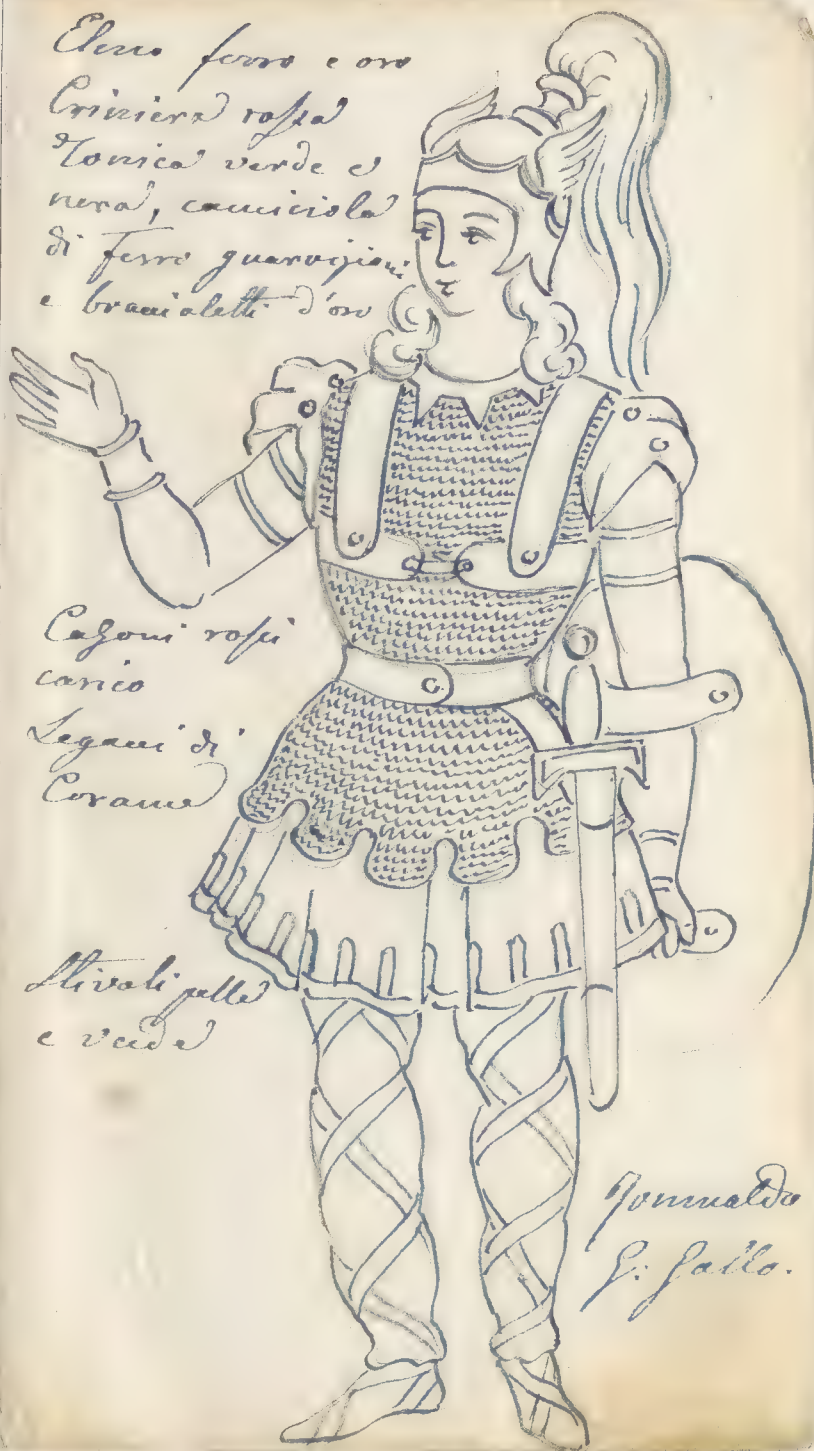 Elmo ferro e oro
Criniera rossa
Tonica verde e
nera, camiciola
di ferro guarnizioni
e braccialetti d'oro
Calzoni rossi
carico
Legacci di
Corame
Stivali pelle
e verde
Romualdo
G. Gallo.